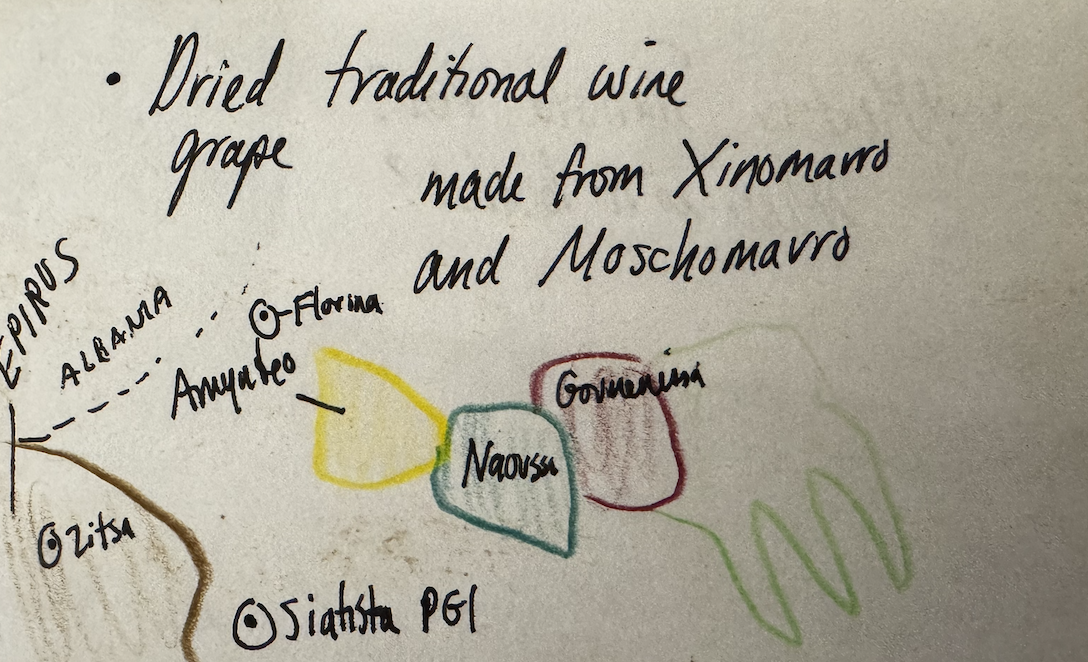 • Dried traditional wine
grape
made from Xinomavro
and Moschomavro
EPIRUS
ALBANIA
Florina
Amynteo
Goumenissa
Naoussa
Zitsa
Siatista PGI